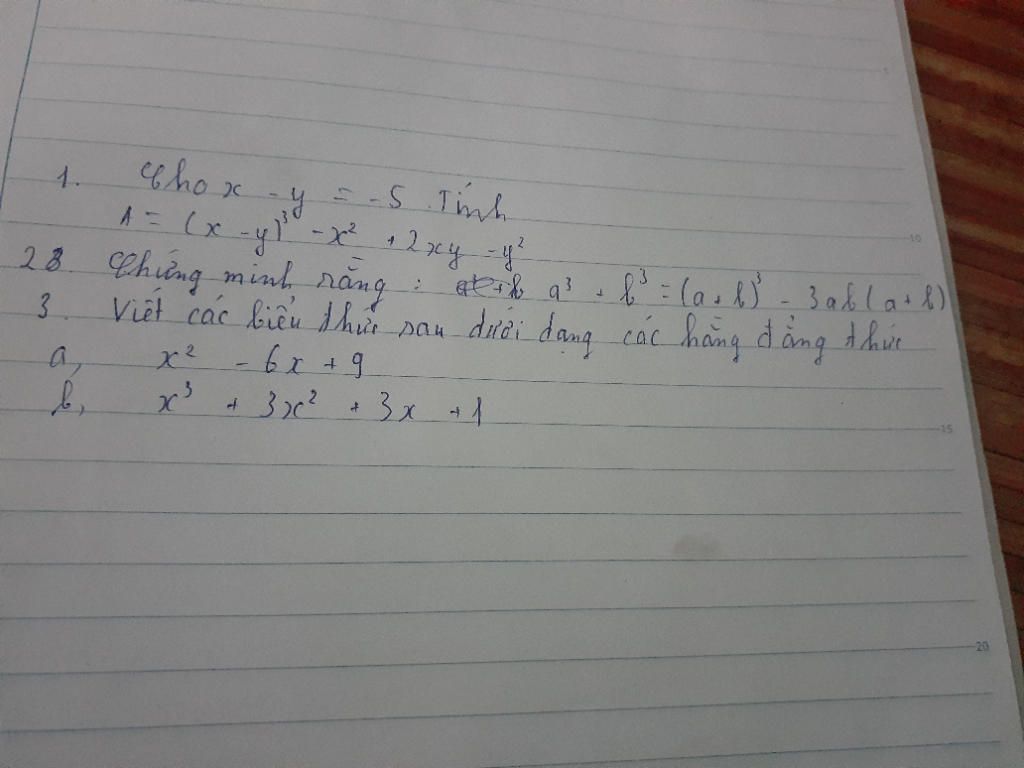 1. Cho x - y = -5. Tính
A = (x - y)³ - x² + 2xy - y²
2. Chứng minh rằng : a³ + b³ = (a + b)³ - 3ab(a + b)
3. Viết các biểu thức sau dưới dạng các hằng đẳng thức
a, x² - 6x + 9
b, x³ + 3x² + 3x + 1
5
10
15
20